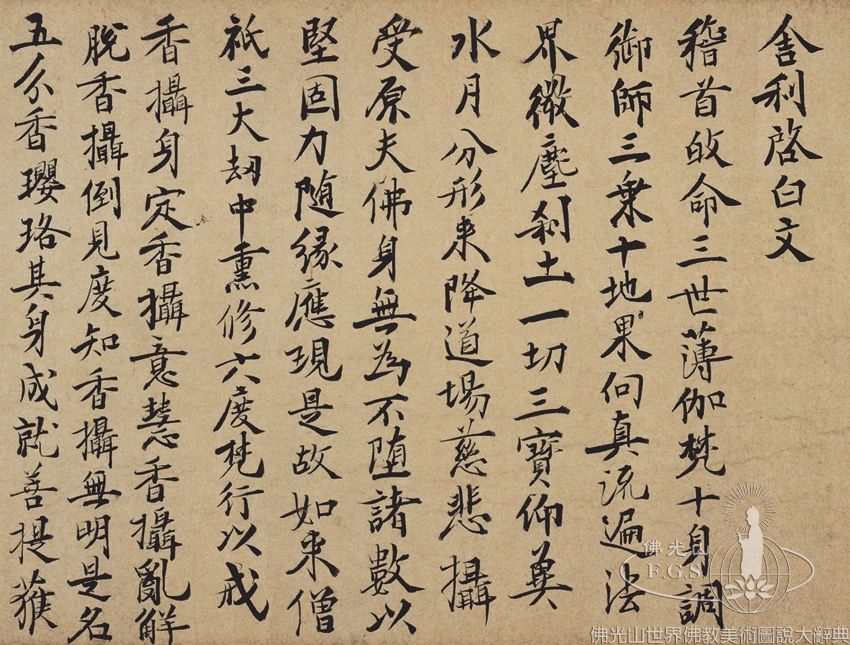 舍利啓白文
稽首敀命三世薄伽梵十身調
御師三乗十地果向真流遍法
界微塵刹土一切三寶仰奠
水月分形来降道場慈悲攝
受原夫佛身無為不堕諸數以
堅固力随緣應現是故如来僧
祇三大劫中熏修六度梵行以戒
香攝身定香攝意慧香攝亂解
脫香攝倒見度知香攝無明是名
五分香瓔珞其身成就菩提薩
佛光山
F.G.S.
佛光山世界佛教美術圖說大辭典